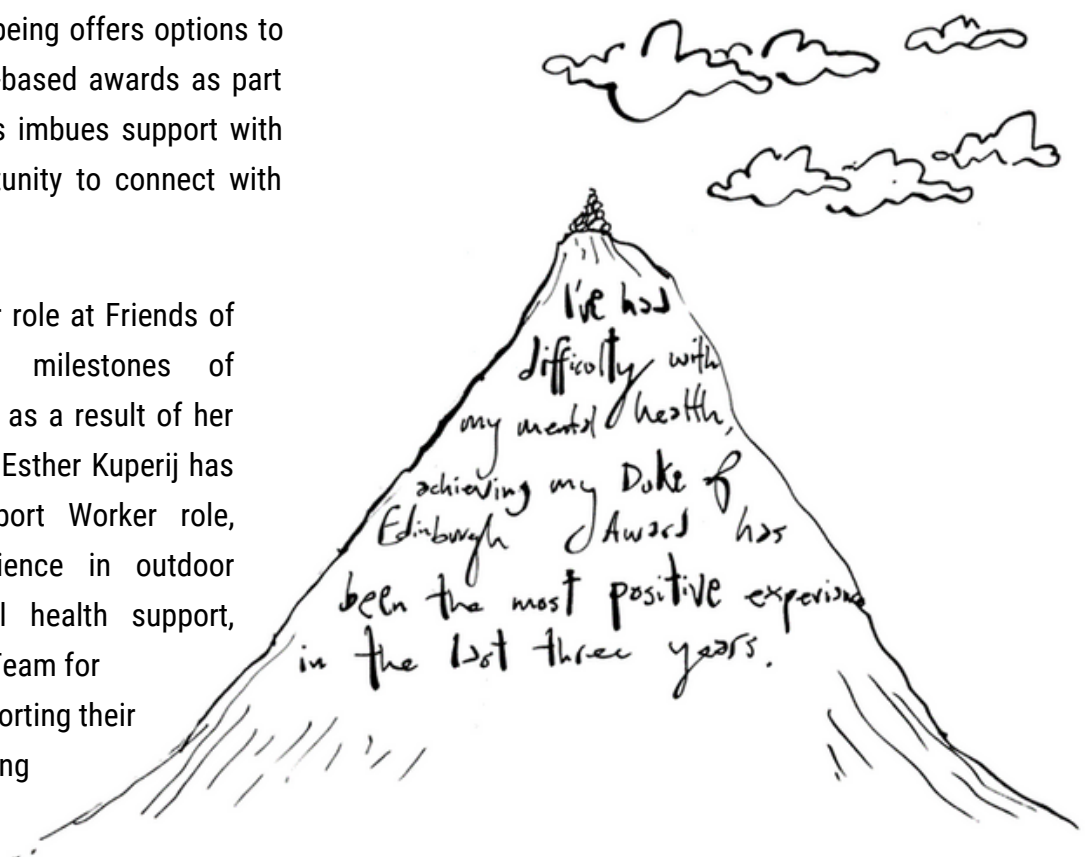 being offers options to
based awards as part
s imbues support with
tunity to connect with
r role at Friends of
milestones of
as a result of her
Esther Kuperij has
port Worker role,
ience in outdoor
l health support,
Team for
orting their
ng
I've had
difficulty with
my mental health,
achieving my Duke of
Edinburgh Award has
been the most positive experience
in the last three years.